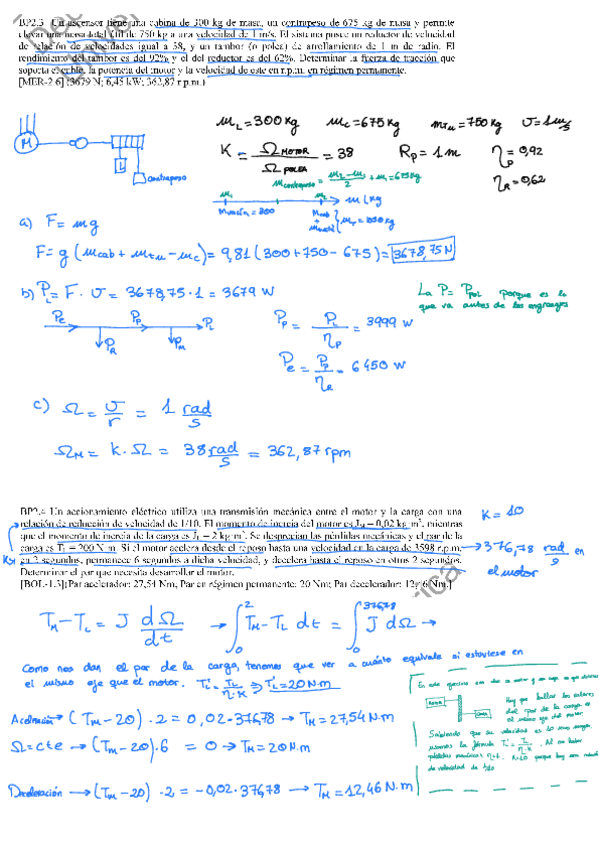 BP2.3 Un ascensor tiene una cabina de 300 kg de masa, un contrapeso de 675 kg de masa y permite
elevar una masa total útil de 750 kg a una velocidad de 1 m/s. El sistema posee un reductor de velocidad
de relación de velocidades igual a 38, y un tambor (o polea) de arrollamiento de 1 m de radio. El
rendimiento del tambor es del 92% y el del reductor es del 62%. Determinar la fuerza de tracción que
soporta el cable, la potencia del motor y la velocidad de este en r.p.m. en régimen permanente.
[MER-2.6] (3679 N; 6,45 kW; 362,87 r.p.m.)
M
L
Contrapeso
m_L = 300 kg m_c = 675 kg m_Tu = 750 kg v = 1 m/s
K = Ω MOTOR / Ω POLEA = 38 R_p = 1 m η_p = 0,92
η_R = 0,62
m contrapeso = (m_2 - m_1)/2 + m_1 = 675 kg
m_1 m_2 m (kg)
a) F = mg
F = g (m_cab + m_tu - m_c) = 9,81 (300 + 750 - 675) = 3678,75 N
b) P_L = F · v = 3678,75 · 1 = 3679 W
La P = P_pol porque es la
que va antes de los engranajes
P_e P_p P_L
P_R P_m
P_p = P_L / η_p = 3999 W
P_e = P_p / η_R = 6450 W
c) Ω = v/r = 1 rad/s
Ω_M = k · Ω = 38 rad/s = 362,87 rpm
BP2.4 Un accionamiento eléctrico utiliza una transmisión mecánica entre el motor y la carga con una
relación de reducción de velocidad de 1/10. El momento de inercia del motor es J_M = 0,02 kg·m², mientras
que el momento de inercia de la carga es J_L = 2 kg·m². Se desprecian las pérdidas mecánicas y el par de la
carga es T_L = 200 N·m. Si el motor acelera desde el reposo hasta una velocidad en la carga de 3598 r.p.m.
en 2 segundos, permanece 6 segundos a dicha velocidad, y decelera hasta el reposo en otros 2 segundos.
Determinar el par que necesita desarrollar el motor.
[BOL-1.3] (Par acelerador: 27,54 Nm, Par en régimen permanente: 20 Nm; Par decelerador: 12,46 Nm.]
K = 10
376,78 rad/s en
el motor
T_M - T_L = J dΩ/dt → ∫₀² T_M - T_L dt = ∫₀^376,78 J dΩ →
Como nos dan el par de la carga, tenemos que ver a cuánto equivale si estuviese en
el mismo eje que el motor. T_L' = T_L / η·k ⇒ T_L' = 20 N·m
Aceleración → (T_M - 20) · 2 = 0,02 · 376,78 → T_M = 27,54 N·m
Ω = cte → (T_M - 20) · 6 = 0 → T_M = 20 N·m
Deceleración → (T_M - 20) · 2 = -0,02 · 376,78 → T_M = 12,46 N·m
Hay que hallar los valores
del par de la carga en
el mismo eje del motor.